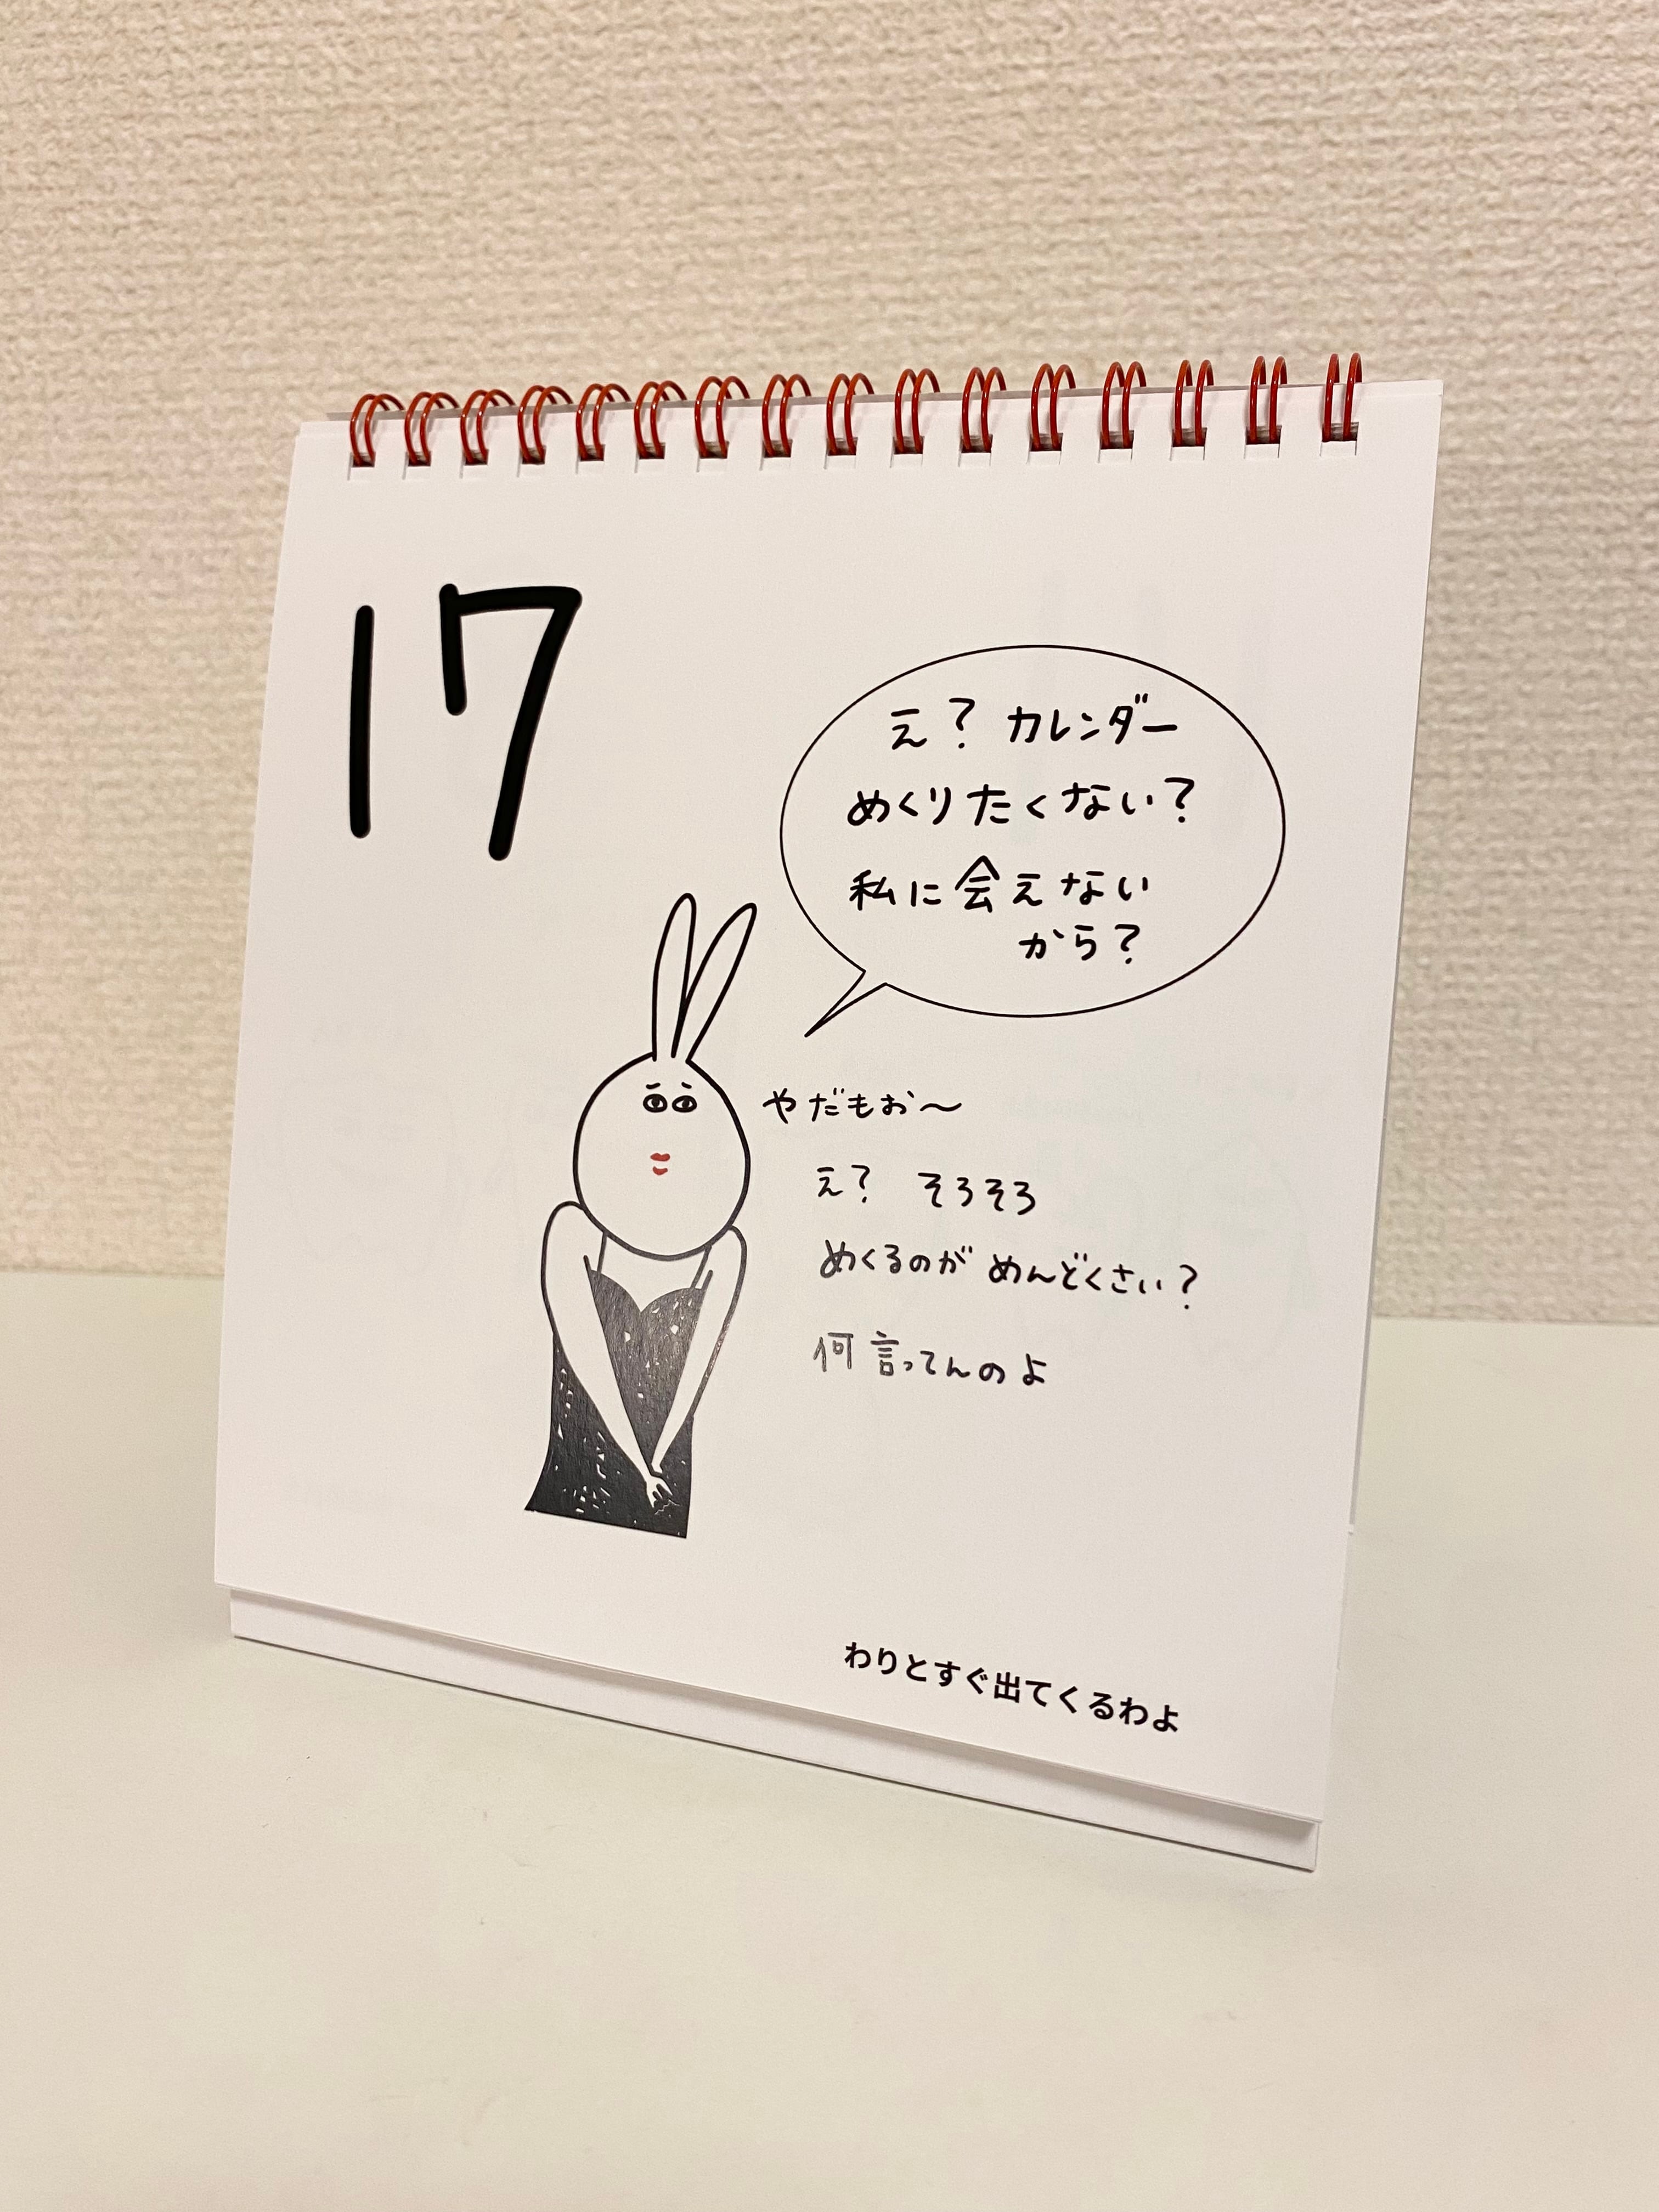 17
え？カレンダー
めくりたくない？
私に会えない
から？
やだもお〜
え？ そろそろ
めくるのがめんどくさい？
何言ってんのよ
わりとすぐ出てくるわよ